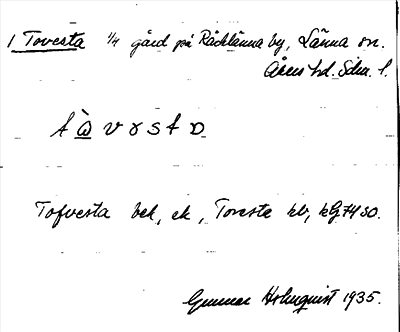 1 Tovesta 1/4 gård på Räcklänna by, Länna sn.
Åkers hd. Södm. l.
t ò̱ v ɤ s t ɒ
Tofvesta bek, ek, Toresta kb, kbg 74 so.
Gunnar Holmquist 1935.